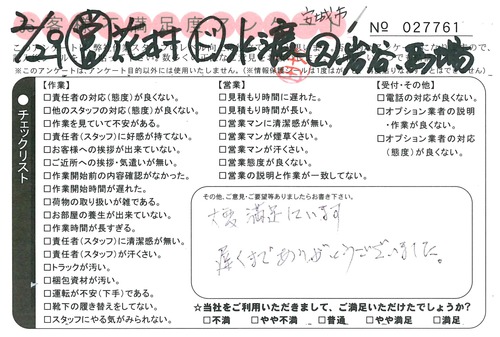 安城市
2/29 営 花村 水濃 2 岩谷 馬場
No 027761
※このアンケートは、アンケート目的以外には使用いたしません。
●チェックリスト
【作業】
□責任者の対応(態度)が良くない。
□他のスタッフの対応(態度)が良くない。
□作業を見ていて不安がある。
□責任者(スタッフ)に好感が持てない。
□お客様への挨拶が出来ていない。
□ご近所への挨拶・気遣いが無い。
□作業開始前の内容確認がなかった。
□作業開始時間が遅れた。
□荷物の取り扱いが雑である。
□お部屋の養生が出来ていない。
□作業時間が長すぎる。
□責任者(スタッフ)に清潔感が無い。
□責任者(スタッフ)が汗くさい。
□トラックが汚い。
□梱包資材が汚い。
□運転が不安(下手)である。
□靴下の履き替えをしてない。
□スタッフにやる気がみられない。
【営業】
□見積もり時間に遅れた。
□見積もり時間が長い。
□営業マンに清潔感が無い。
□営業マンが煙草くさい。
□営業マンが汗くさい。
□営業態度が良くない。
□営業の説明と作業が一致してない。
【受付・その他】
□電話の対応が良くない。
□オプション業者の説明
・作業が良くない。
□オプション業者の対応
(態度)が良くない。
その他、ご意見・ご要望等ありましたらお書き下さい。
大変満足しています
遅くまでありがとうございました。
☆当社をご利用いただきまして、ご満足いただけたでしょうか?
□不満 □やや不満 □普通 □やや満足 □満足